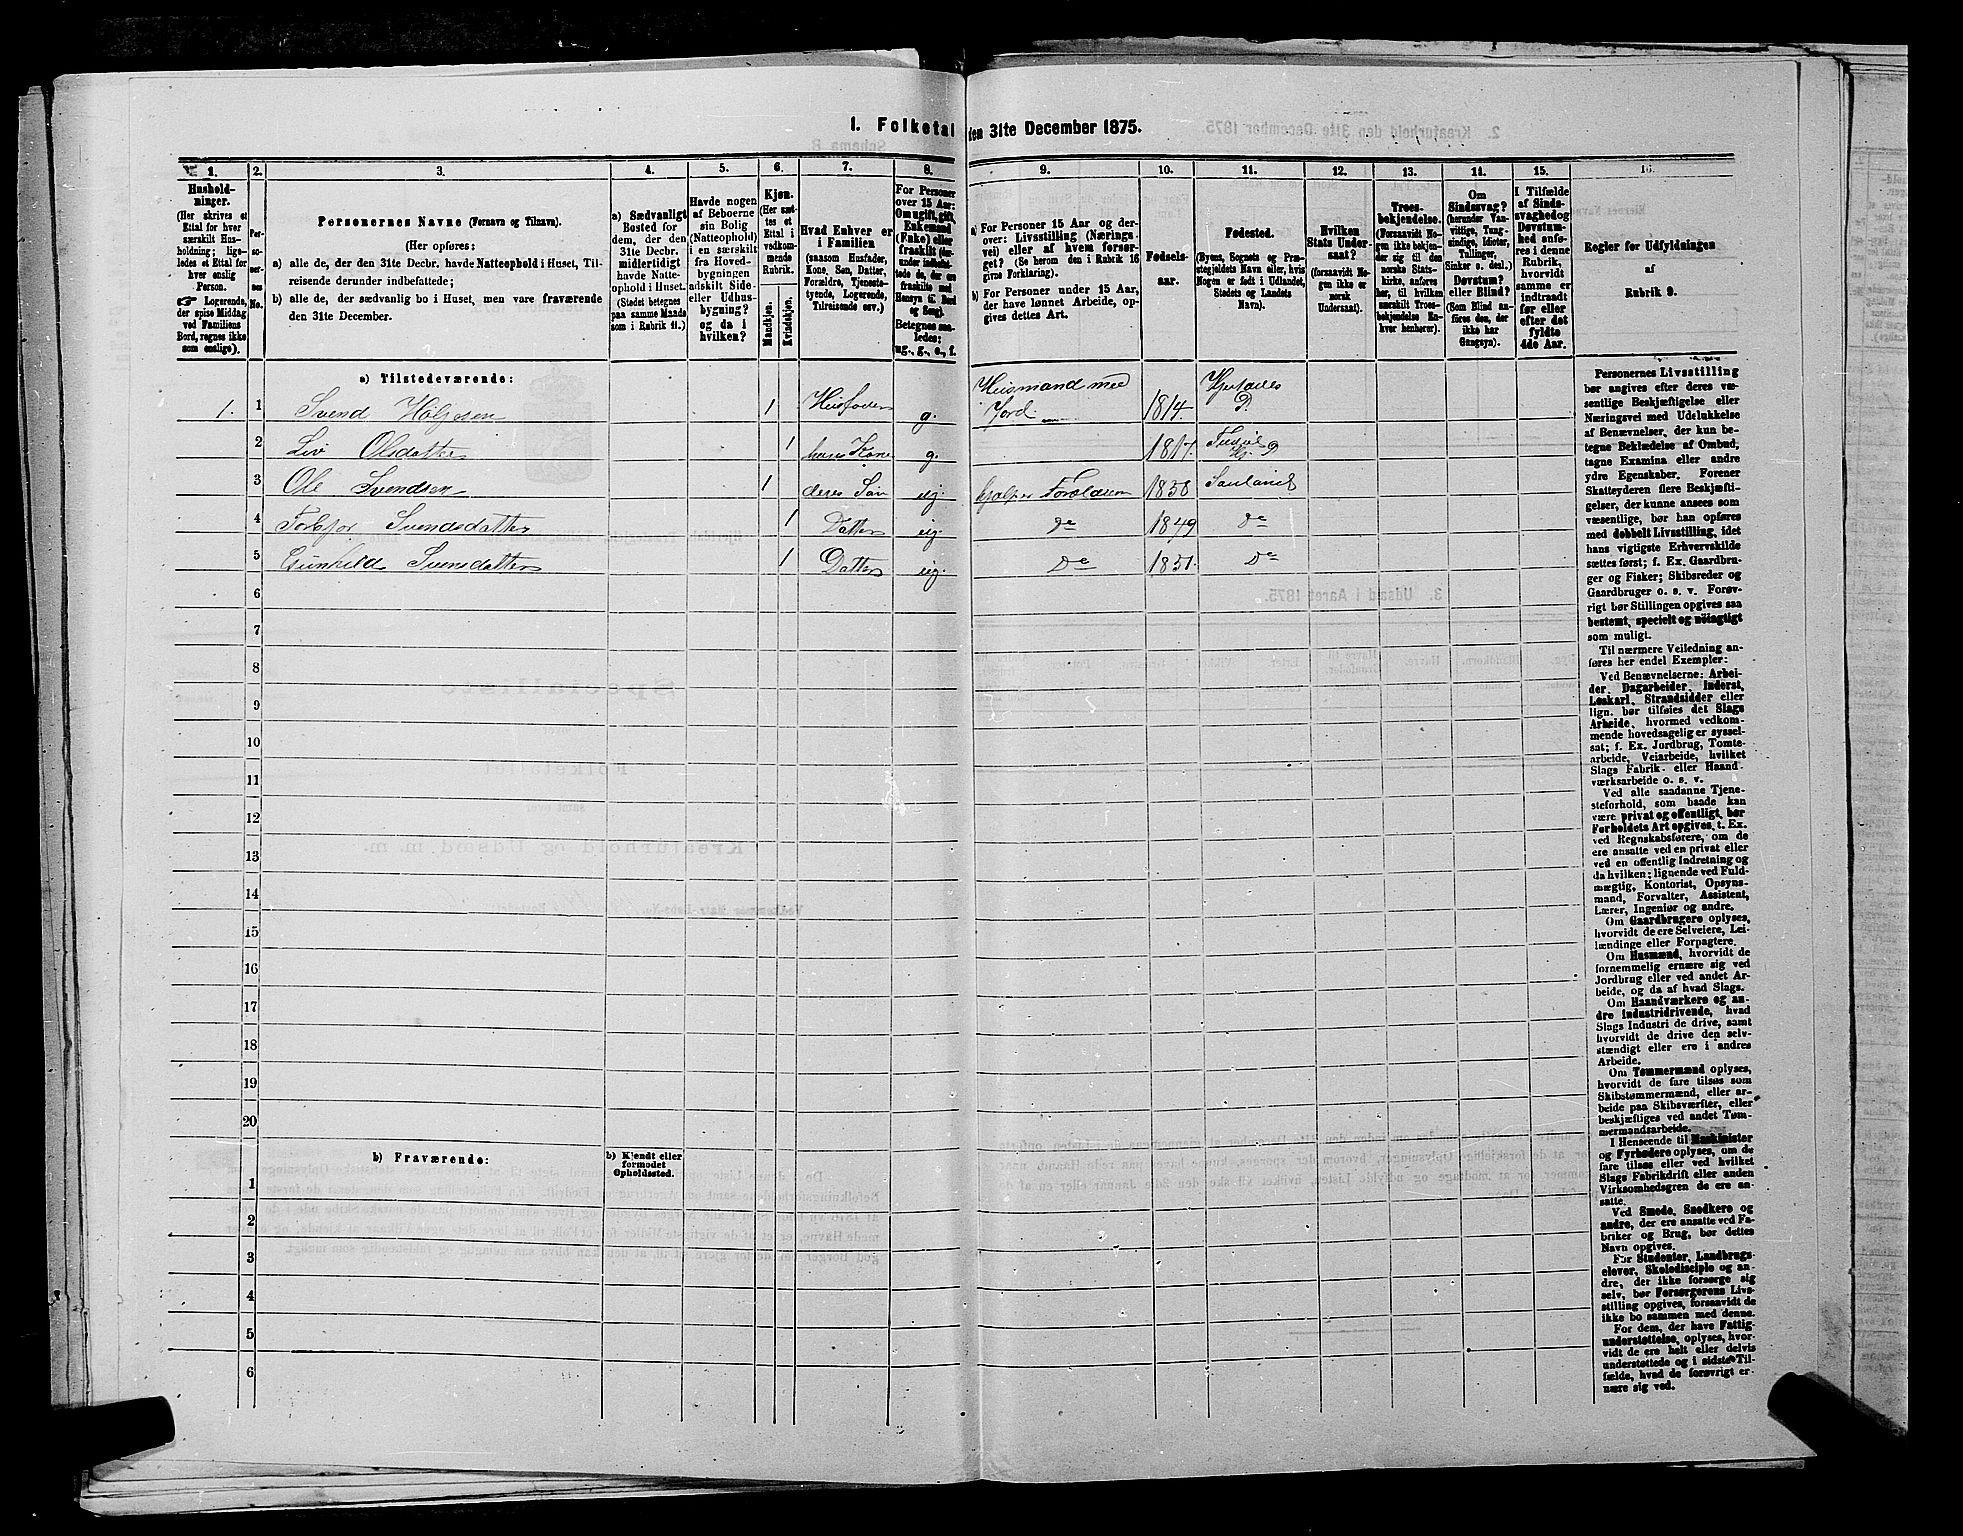 1. Folketal den 31te December 1875.
1.
Hushold-
ninger.
(Her skrives et
Ettal for hver
særskilt Hus-
holdning; lige-
ledes et Ettal for
hver enslig
Person.
Logerende,
der spise Middag
ved Familiens
Bord, regnes ikke
som enslige).
2.
Per-
so-
ner-
nes
No.
3.
Personernes Navne (Fornavn og Tilnavn).
(Her opføres:
a) alle de, der den 31te Decbr. havde Natteophold i Huset, Til-
reisende derunder indbefattede;
b) alle de, der sædvanlig bo i Huset, men vare fraværende
den 31te December.
4.
a) Sædvanligt
Bosted for
dem, der den
31te Decbr.
midlertidigt
havde Natte-
ophold i Huset.
(Stedet betegnes
paa samme Maade
som i Rubrik 11.)
5.
Havde nogen
af Beboerne
sin Bolig
(Natteophold)
i en særskilt
fra Hoved-
bygningen
adskilt Side-
eller Udhus-
bygning?
og da i
hvilken?
6.
Kjøn.
(Her sæt-
tes et
Ettal i
vedkom-
mende
Rubrik.
Mandkjøn.
Kvindekjøn.
7.
Hvad Enhver er
i Familien
(saasom Husfader,
Kone, Søn, Datter,
Forældre, Tjeneste-
tyende, Logerende,
Tilreisende osv.)
8.
For Personer
over 15 Aar:
Om ugift, gift,
Enkemand
(Enke) eller
fraskilt
Betegnes saa-
ledes:
ug., g., e., f.
9.
a) For Personer 15 Aar og der-
over: Livsstilling (Nærings-
vei) eller af hvem forsør-
get? (Se herom den i Rubrik 16
givne Forklaring).
b) For Personer under 15 Aar,
der have lønnet Arbeide, op-
gives dettes Art.
10.
Fødsels-
aar.
11.
Fødested.
(Byens, Sognets og Præ-
stegjeldets Navn eller, hvis
Nogen er født i Udlandet,
Stedets og Landets
Navn).
12.
Hvilken
Stats Under-
saat?
(forsaavidt No-
gen ikke er
norsk
Undersaat).
13.
Troes-
bekjendelse.
(Forsaavidt No-
gen ikke bekjen-
der sig til den
norske Stats-
kirke, anføres
her, til hvilken
særskilt Troes-
bekjendelse En-
hver henhører).
14.
Om
Sindssvag?
(herunder Van-
vittige, Tung-
sindige, Idioter,
Tullinger,
Sinker o. desl.)
Døvstum?
eller Blind?
(Som Blind an-
føres den, der
ikke har
Gangsyn).
15.
I Tilfælde
af Sinds-
svaghed og
Døvstum-
hed anfø-
res i denne
Rubrik,
hvorvidt
samme er
indtraadt
før eller
efter det
fyldte
4de Aar.
16.
Regler for Udfyldningen
af
Rubrik 9.
a) Tilstedeværende:
1. 1 Svend Holjesen 1 Husfader g. Husmand med Jord 1814. Hjertdals P.
2 Liv Olsdatter 1 hans Kone g. 1817. P
3 Ole Svendsen 1 deres Søn ug. hjælper Forældrene 1838 Sauland
4 Torbjør Svendsdatter 1 Datter ug. do 1849 do
5 Gunhild Svensdatter 1 Datter ug. Do 1851. Do
6
7
8
9
10
11
12
13
14
15
16
17
18
19
20
b) Fraværende:
b) Kjendt eller
formodet
Opholdssted.
1
2
3
4
5
6
Personernes Livsstilling
bør angives efter deres væ-
sentlige Beskjæftigelse eller
Næringsvei med Udelukkelse
af Benævnelser, der kun be-
tegne Beklædelse af Ombud,
tagne Examina eller andre
ydre Egenskaber. Forener
Skatteyderen flere Beskjæfti-
gelser, der kunne ansees som
væsentlige, bør han opføres
med dobbelt Livsstilling, idet
hans vigtigste Erhvervskilde
sættes først; f. Ex. Gaardbru-
ger og Fisker; Skibsreder og
Gaardbruger o. s. v. Forøv-
rigt bør Stillingen opgives saa
bestemt, specielt og nøiagtigt
som muligt.
Til nærmere Veiledning an-
føres her endel Exempler:
Ved Benævnelserne: Arbei-
der, Dagarbeider, Inderst,
Løskarl, Strandsidder eller
lign. bør tilføies det Slags
Arbeide, hvormed vedkom-
mende hovedsagelig er syssel-
sat; f. Ex. Jordbrug, Tomte-
arbeide, Veiarbeide, hvilket
Slags Fabrik- eller Haand-
værksarbeide o. s. v.
Ved alle saadanne Tjene-
steforhold, som baade kan
være privat og offentligt, bør
Forholdets Art opgives, t. Ex.
ved Regnskabsførere, om de
ere ansatte ved en privat eller
ved en offentlig Indretning og
da hvilken; lignende ved Fuld-
mægtig, Kontorist, Opsyns-
mand, Forvalter, Assistent,
Lærer, Ingeniør og andre.
Om Gaardbrugere oplyses,
hvorvidt de ere Selveiere, Lei-
lændinge eller Forpagtere.
Om Husmænd, hvorvidt de
fornemmelig ernære sig ved
Jordbrug eller ved andet Ar-
beide, og da af hvad Slags.
Om Haandværkere og an-
dre Industridrivende, hvad
Slags Industri de drive, samt
hvorvidt de drive den selv-
stændigt eller ere i andres
Arbeide.
Om Tømmermænd oplyses,
hvorvidt de fare tilsøs som
Skibstømmermænd, eller ar-
beide paa Skibsværfter, eller
beskjæftiges ved andet Tøm-
mermandsarbeide.
I Henseende til Maskinister
og Fyrbødere oplyses, om de
fare tilsøs eller ved hvilket
Slags Fabrikdrift eller anden
Virksomhedsgren de ere an-
satte.
Ved Smede, Snedkere og
andre, der ere ansatte ved Fa-
briker og Brug, bør dettes
Navn opgives.
For Studenter, Landbrugs-
elever, Skoledisciple og an-
dre, der ikke forsørge sig
selv, bør Forsørgerens Livs-
stilling opgives, forsaavidt de
ikke bo sammen med denne.
For dem, der have Fattig-
understøttelse, oplyses, hvor-
vidt de ere helt eller delvis
understøttede og i sidste Til-
fælde, hvad de forøvrigt er-
nære sig ved.